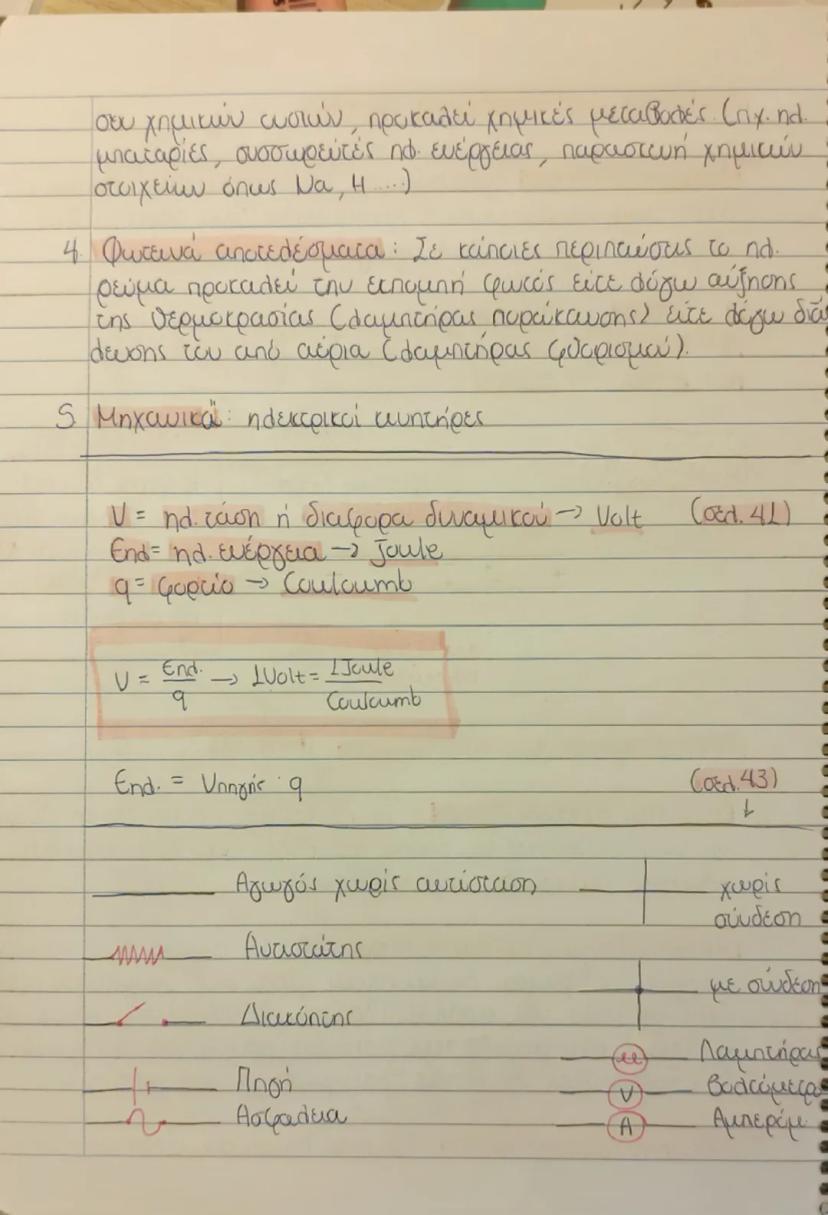 σεις χημικών ουσιών, προκαλεί χημικές μεταβολές (πχ. ηλ.
μπαταρίες, συσσωρευτές ηλ. ενέργειας, παρασκευή χημικών
στοιχείων όπως Na, H ....)
4. Φωτεινά αποτελέσματα: Σε κάποιες περιπτώσεις το ηλ.
ρεύμα προκαλεί την εκπομπή φωτός είτε λόγω αύξησης
της θερμοκρασίας (λαμπτήρας πυράκτωσης) είτε λόγω διέ
λευσης του από αέρια (λαμπτήρας φθορισμού).
5. Μηχανικά: ηλεκτρικοί κινητήρες
V = ηλ. τάση ή διαφορα δυναμικού → Volt (σελ. 41)
Εηλ = ηλ. ενέργεια → Joule
q = φορτίο → Couloumb
V = Εηλ. / q → 1Volt = 1Joule / Couloumb
Εηλ. = Vπηγής · q (σελ. 43)
↓
Αγωγός χωρίς αντίσταση χωρίς
σύνδεση
Αντιστάτης
με σύνδεση
Διακόπτης
Λαμπτήρας
Πηγή V Βολτόμετρο
Ασφάλεια A Αμπερόμ